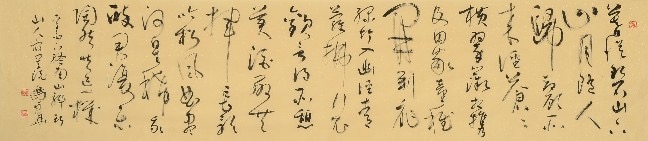 暮從碧山下
山月隨人
歸卻顧所
來徑蒼〻
橫翠微相攜
及田家童稚
開荊扉
綠竹入幽徑青
蘿拂行衣
歡言得所憩
美酒聊共
揮長歌
吟松風曲盡
河星稀我
醉君復樂
陶然共忘機
下終南山過斛斯
山人宿置酒